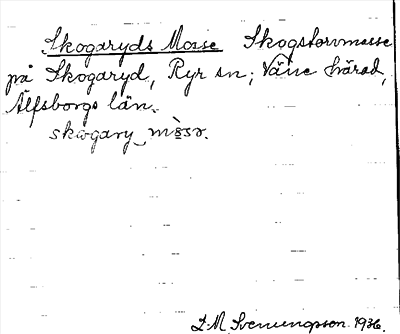 Skogaryds Mosse Skogstorvmosse
på Skogaryd, Ryr sn; Väne härad,
Älfsborgs län.
skωgary mòsә.
L. M. Svenungsson. 1936.